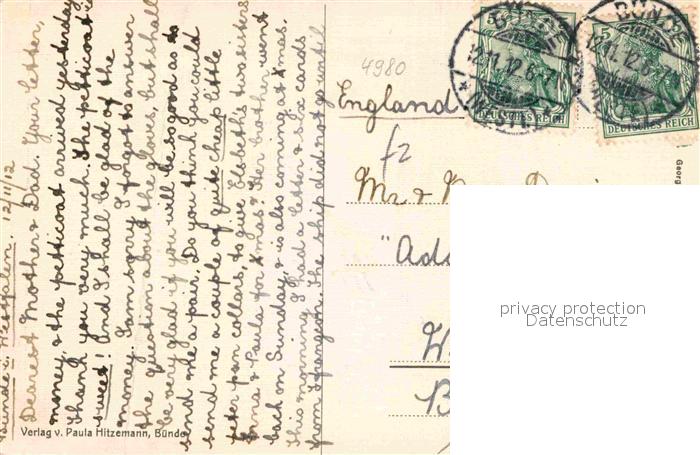 Bünde i. Westfalen. 12/11/12
Dearest Mother & Dad. Your letter,
money, & the petticoat arrived yesterday
Thank you very much. The petticoat is
sweet! And I shall be glad of the
money. I am sorry I forgot to answer
the question about the gloves, but shall
be very glad if you will be so good as to
send me a pair. Do you think you could
send me a couple of quite cheap little
peter pan collars, to give Elsbeths two sisters
Anna & Paula for Xmas? Her brother went
back on Sunday, & is also coming at Xmas.
This morning I had a letter & six cards
from The ship did not go until
Verlag v. Paula Hitzemann, Bünde
4980
England
f2
Mr &
"Ad
W
B
BÜNDE
12.11.12.6-7
5
DEUTSCHES REICH
BÜNDE
12.11.12.6-7
5
DEUTSCHES REICH
Georg
privacy protection
Datenschutz